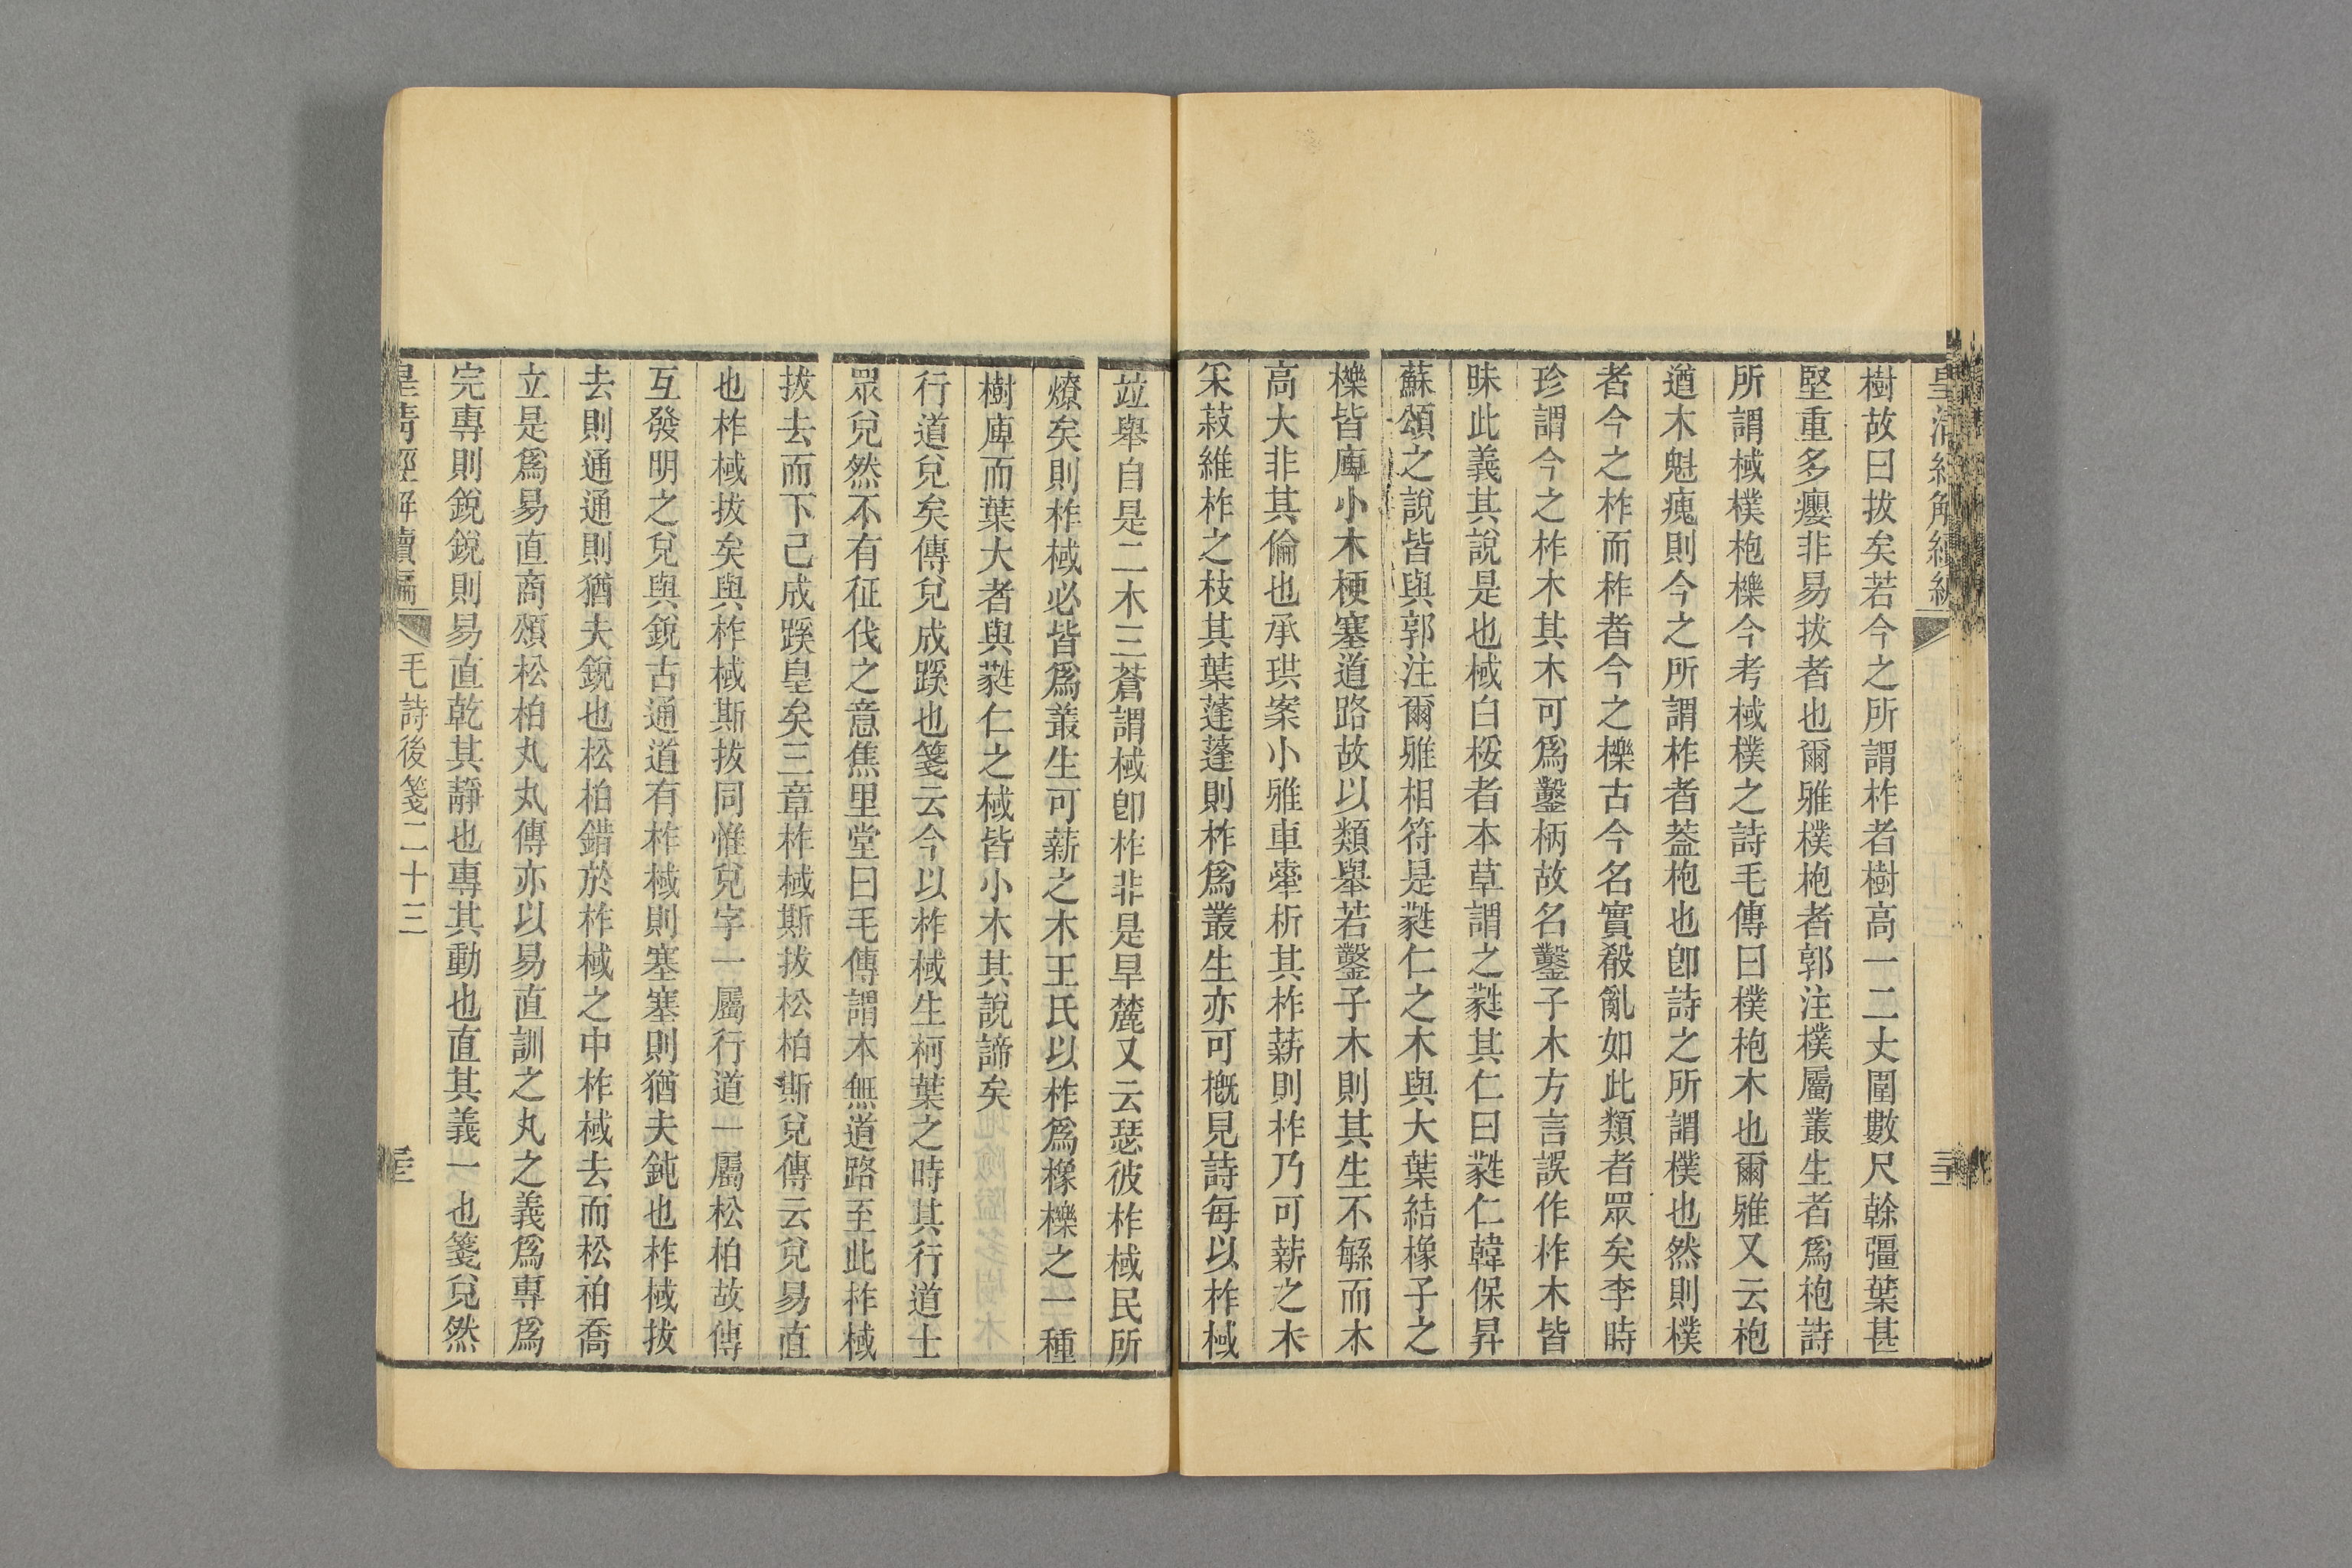 樹故曰拔矣若今之所謂柞者樹高一二丈圍數尺榦彊葉甚
堅重多癭非易拔者也爾雅樸枹者郭注樸屬叢生者爲枹詩
所謂棫樸枹櫟今考棫樸之詩毛傳曰樸枹木也爾雅又云枹
遒木魁瘣則今之所謂柞者葢枹也卽詩之所謂樸也然則樸
者今之柞而柞者今之櫟古今名實殽亂如此類者眾矣李時
珍謂今之柞木其木可爲鑿柄故名鑿子木方言誤作柞木皆
昧此義其說是也棫白桵者本草謂之蕤其仁曰蕤仁韓保昇
蘇頌之說皆與郭注爾雅相符是蕤仁之木與大葉結橡子之
櫟皆庳小木梗塞道路故以類舉若鑿子木則其生不緐而木
高大非其倫也承珙案小雅車舝析其柞薪則柞乃可薪之木
采菽維柞之枝其葉蓬蓬則柞爲叢生亦可槪見詩每以柞棫
竝舉自是二木三蒼謂棫卽柞非是旱麓又云瑟彼柞棫民所
燎矣則柞棫必皆爲叢生可薪之木王氏以柞爲橡櫟之一種
樹庳而葉大者與蕤仁之棫皆小木其說諦矣
行道兌矣傳兌成蹊也箋云今以柞棫生柯葉之時其行道士
眾兌然不有征伐之意焦里堂曰毛傳謂本無道路至此柞棫
拔去而下已成蹊皇矣三章柞棫斯拔松柏斯兌傳云兌易直
也柞棫拔矣與柞棫斯拔同惟兌字一屬行道一屬松柏故傳
互發明之兌與銳古通道有柞棫則塞塞則猶夫鈍也柞棫拔
去則通通則猶夫銳也松柏錯於柞棫之中柞棫去而松柏喬
立是爲易直商頌松柏丸丸傳亦以易直訓之丸之義爲專爲
完專則銳銳則易直乾其靜也專其動也直其義一也箋兌然
皇清經解續編 毛詩後箋二十三